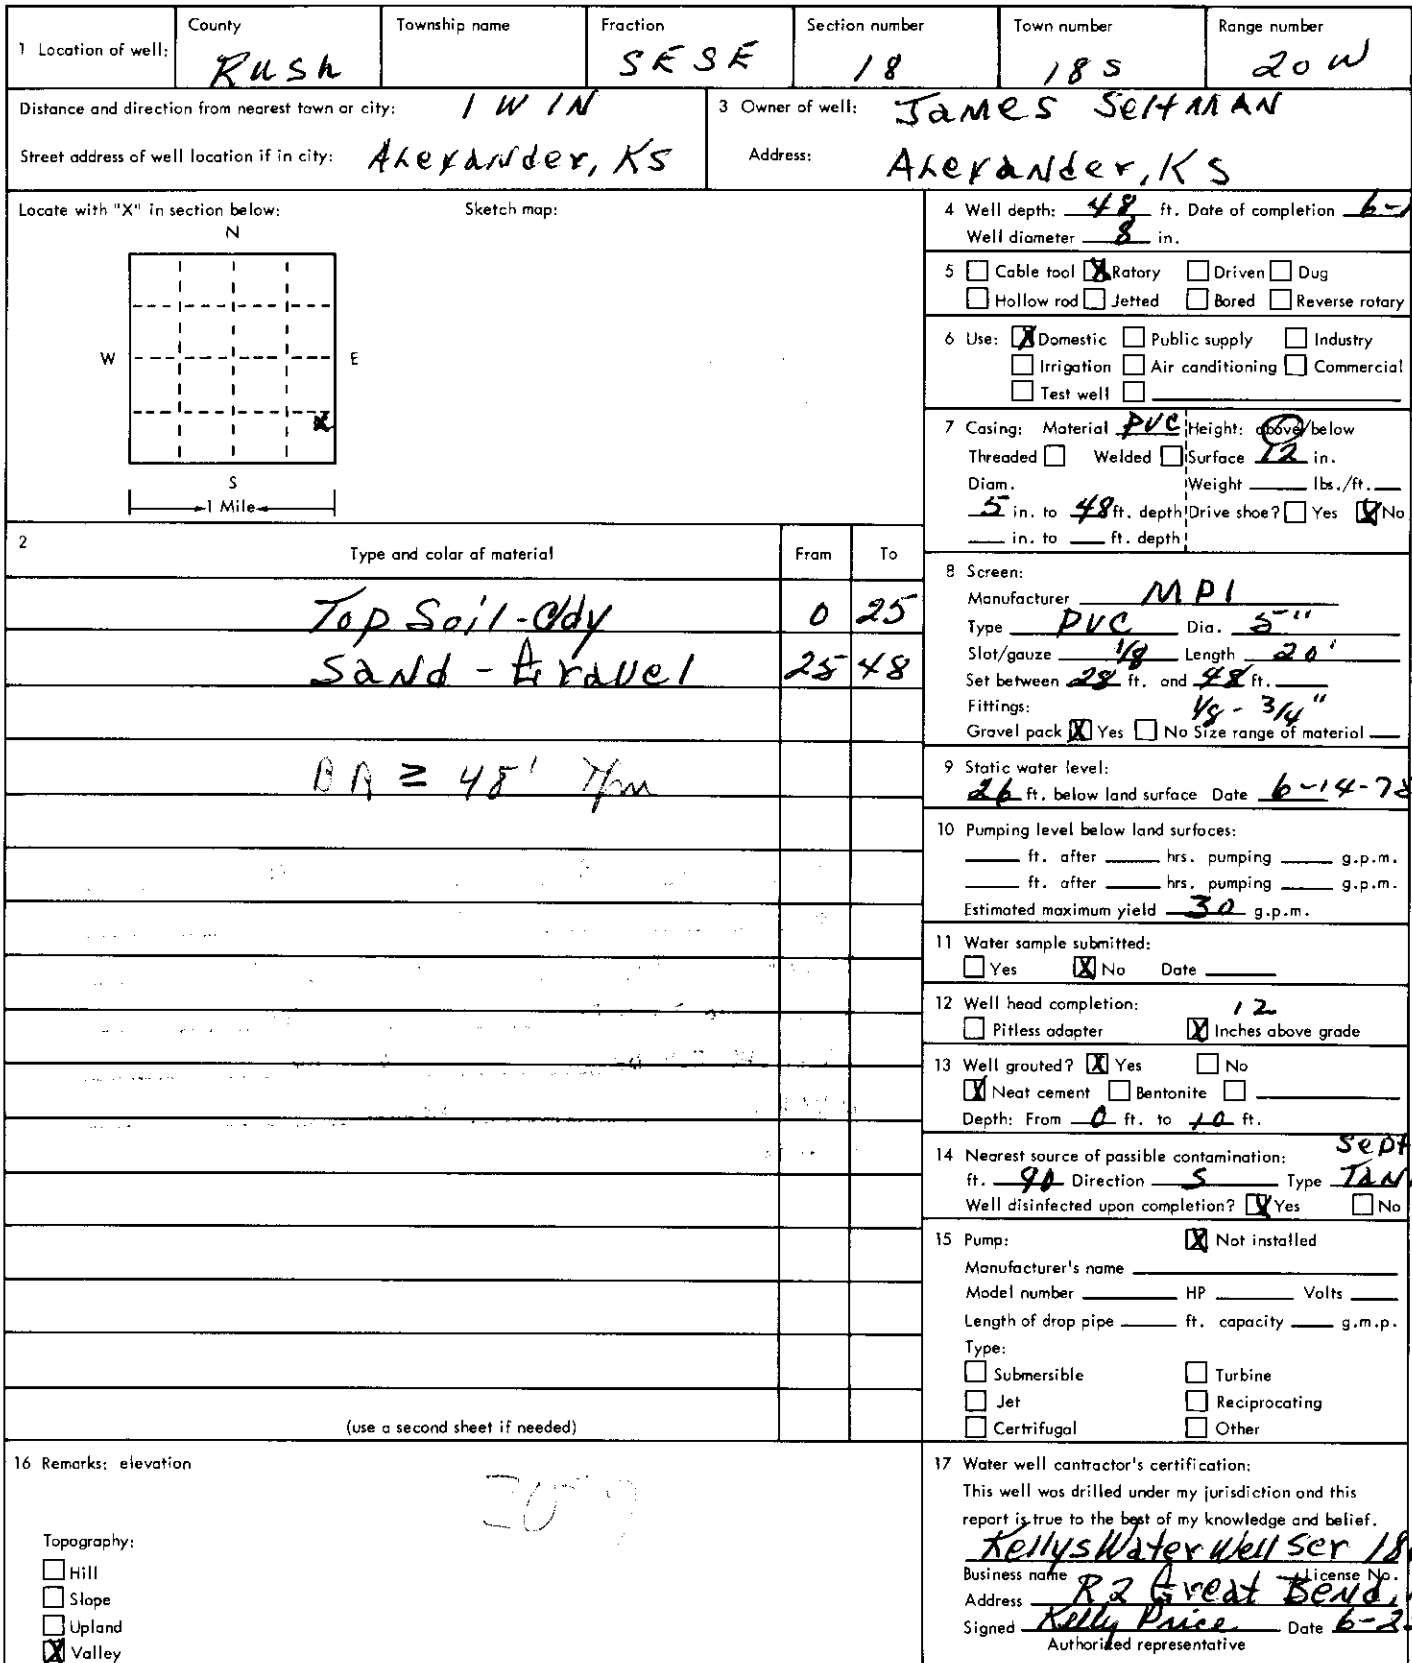 1 Location of well: County Township name Fraction Section number Town number Range number
Rush SE SE 18 18 S 20 W
Distance and direction from nearest town or city: 1 W 1 N
Street address of well location if in city: Alexander, KS
3 Owner of well: James Seltman
Address: Alexander, KS
Locate with "X" in section below: Sketch map:
N
W E
X
S
1 Mile
2 Type and color of material From To
Top Soil - Clay 0 25
Sand - Gravel 25 48
BA ≥ 48'
(use a second sheet if needed)
4 Well depth: 48 ft. Date of completion 6-1
Well diameter 8 in.
5 Cable tool X Rotary Driven Dug
Hollow rod Jetted Bored Reverse rotary
6 Use: X Domestic Public supply Industry
Irrigation Air conditioning Commercial
Test well
7 Casing: Material PVC Height: above/below
Threaded Welded Surface 12 in.
Diam. Weight lbs./ft.
5 in. to 48 ft. depth Drive shoe? Yes X No
in. to ft. depth
8 Screen:
Manufacturer MPI
Type PVC Dia. 5"
Slot/gauze 1/8 Length 20'
Set between 28 ft. and 48 ft.
Fittings: 1/8 - 3/4"
Gravel pack X Yes No Size range of material
9 Static water level:
26 ft. below land surface Date 6-14-78
10 Pumping level below land surfaces:
ft. after hrs. pumping g.p.m.
ft. after hrs. pumping g.p.m.
Estimated maximum yield 30 g.p.m.
11 Water sample submitted:
Yes X No Date
12 Well head completion: 12
Pitless adapter X Inches above grade
13 Well grouted? X Yes No
X Neat cement Bentonite
Depth: From 0 ft. to 10 ft.
14 Nearest source of possible contamination: Sept
ft. 90 Direction S Type TAN
Well disinfected upon completion? X Yes No
15 Pump: X Not installed
Manufacturer's name
Model number HP Volts
Length of drop pipe ft. capacity g.m.p.
Type:
Submersible Turbine
Jet Reciprocating
Certrifugal Other
16 Remarks: elevation
Topography:
Hill
Slope
Upland
X Valley
17 Water well contractor's certification:
This well was drilled under my jurisdiction and this
report is true to the best of my knowledge and belief.
Kellys Water Well Ser 18
Business name License No.
Address R2 Great Bend,
Signed Kelly Price Date 6-2
Authorized representative